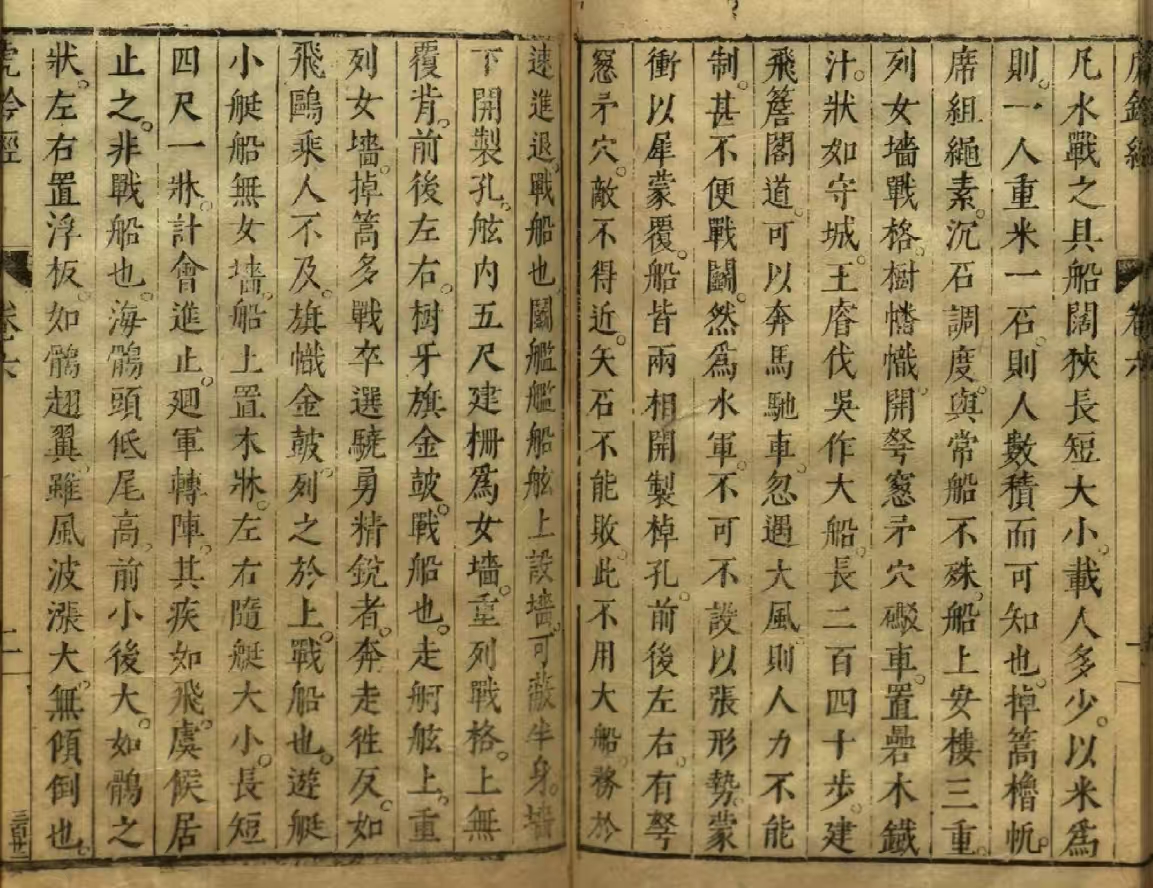 虎鈐經 卷六 一
凡水戰之具船闊狹長短大小。載人多少。以米爲
則。一人重米一石。則人數積而可知也。掉篙櫓帆。
席組繩素。沉石調度。與常船不殊。船上安樓三重。
列女墻戰格。樹幡幟。開弩窻矛穴礮車。置礨木鐵
汁。狀如守城。王濬伐吳作大船。長二百四十步。建
飛簷閣道。可以奔馬馳車。忽遇大風。則人力不能
制。甚不便戰鬭。然爲水軍。不可不設。以張形勢。蒙
衝以犀蒙覆。船皆兩相開製棹孔。前後左右。有弩
窻矛穴。敵不得近。矢石不能敗。此不用大船。務於
速進退。戰船也。鬭艦艦船舷上設墻。可蔽半身。墻
下開製孔。舷内五尺建柵爲女墻。重列戰格。上無
覆背。前後左右。樹牙旗金鼓。戰船也。走舸舷上。重
列女墻。掉篙多戰卒選驍勇精銳者。奔走徃反。如
飛鷗乘人不及。旗幟金鼓。列之於上。戰船也。遊艇
小艇船無女墻。船上置木牀。左右隨艇大小。長短
四尺一牀。計會進止。廻軍轉陣。其疾如飛。虞候居
止之。非戰船也。海鶻頭低尾高。前小後大。如鶻之
狀。左右置浮板。如鶻翅翼。雖風波漲大。無傾倒也。
虎鈐經 卷六 二 三百廿二